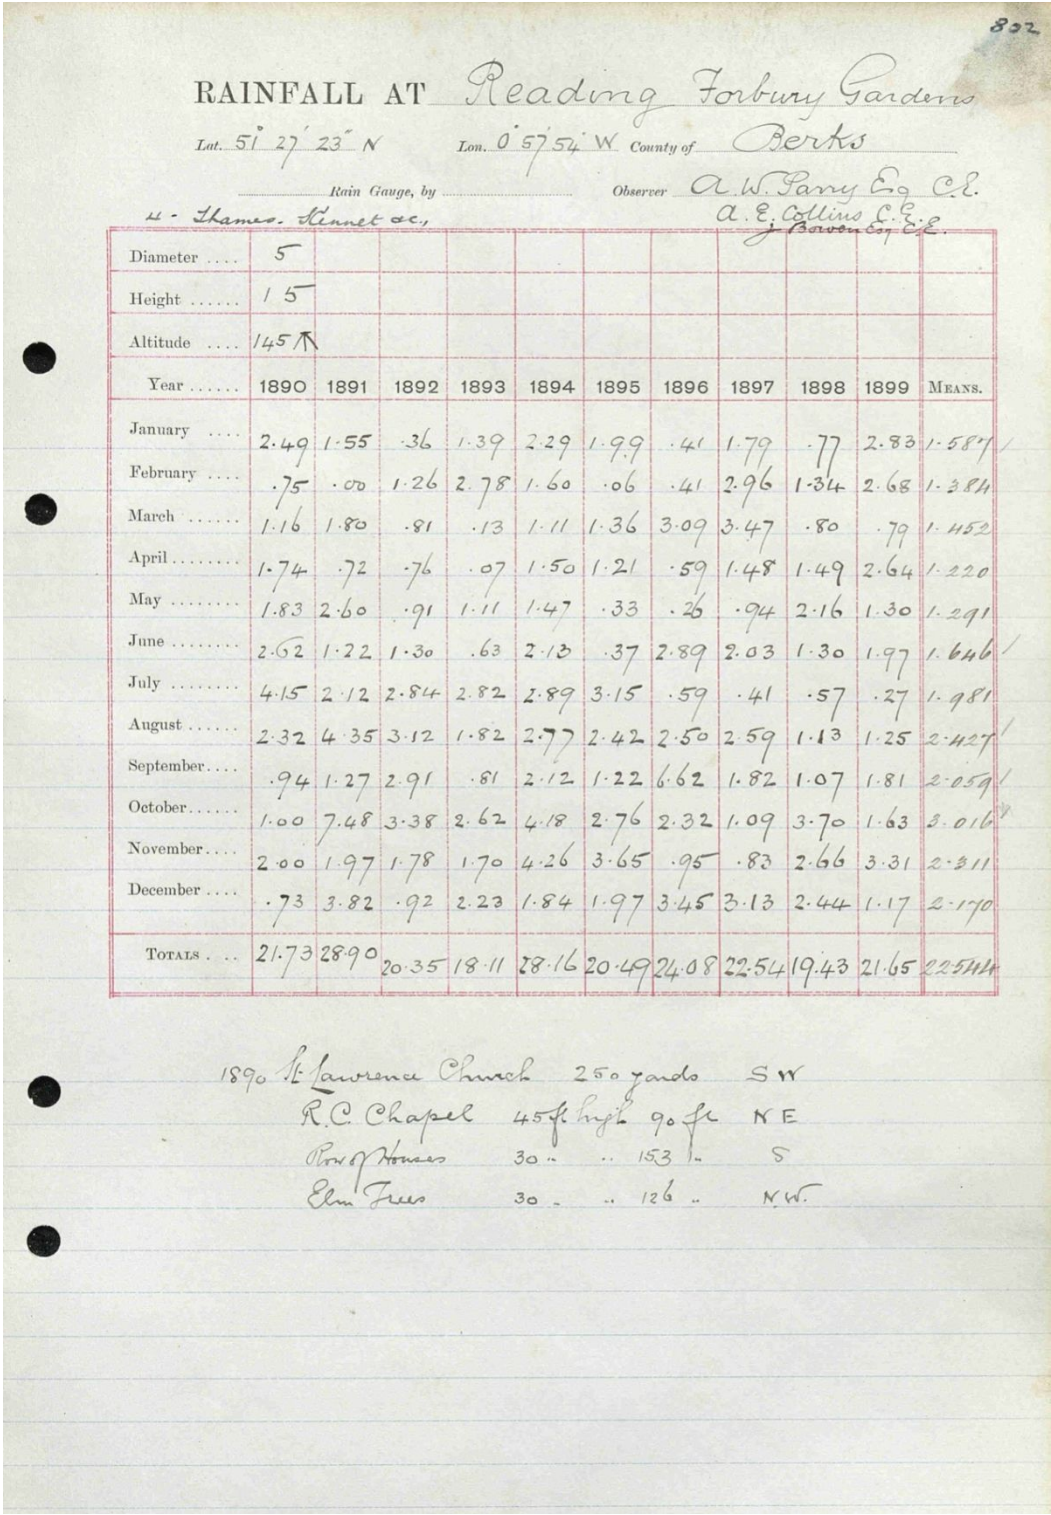 802
RAINFALL AT Reading Forbury Gardens
Lat. 51° 27' 23" N Lon. 0° 57' 54" W County of Berks
Rain Gauge, by Observer A. W. Parry Esq C.E.
4 - Thames. Kennet &c., A. E. Collins C.E.
J Bowen Esq C.E.
Diameter .... 5
Height ...... 15
Altitude .... 145
Year ...... 1890 1891 1892 1893 1894 1895 1896 1897 1898 1899 MEANS.
January .... 2.49 1.55 .36 1.39 2.29 1.99 .41 1.79 .77 2.83 1.587
February .... .75 .00 1.26 2.78 1.60 .06 .41 2.96 1.34 2.68 1.384
March ...... 1.16 1.80 .81 .13 1.11 1.36 3.09 3.47 .80 .79 1.452
April ........ 1.74 .72 .76 .07 1.50 1.21 .59 1.48 1.49 2.64 1.220
May ........ 1.83 2.60 .91 1.11 1.47 .33 .26 .94 2.16 1.30 1.291
June ........ 2.62 1.22 1.30 .63 2.13 .37 2.89 2.03 1.30 1.97 1.646
July ........ 4.15 2.12 2.84 2.82 2.89 3.15 .59 .41 .57 .27 1.981
August ...... 2.32 4.35 3.12 1.82 2.77 2.42 2.50 2.59 1.13 1.25 2.427
September.... .94 1.27 2.91 .81 2.12 1.22 6.62 1.82 1.07 1.81 2.059
October...... 1.00 7.48 3.38 2.62 4.18 2.76 2.32 1.09 3.70 1.63 3.016
November.... 2.00 1.97 1.78 1.70 4.26 3.65 .95 .83 2.66 3.31 2.311
December .... .73 3.82 .92 2.23 1.84 1.97 3.45 3.13 2.44 1.17 2.170
TOTALS .... 21.73 28.90 20.35 18.11 28.16 20.49 24.08 22.54 19.43 21.65 22.544
1890 St Lawrence Church 250 yards SW
R.C. Chapel 45 ft high 90 ft NE
Row of Houses 30 " " 153 " S
Elm Trees 30 " " 126 " N.W.